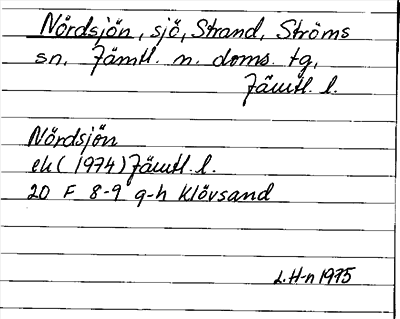 Nördsjön, sjö, Strand, Ströms
sn, Jämtl. n. doms. tg,
Jämtl. l.
Nördsjön
ek (1974) Jämtl. l.
20 F 8-9 g-h Klövsand
L.H-n 1975